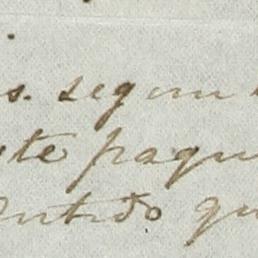 s. segun
te paqu
entido qu